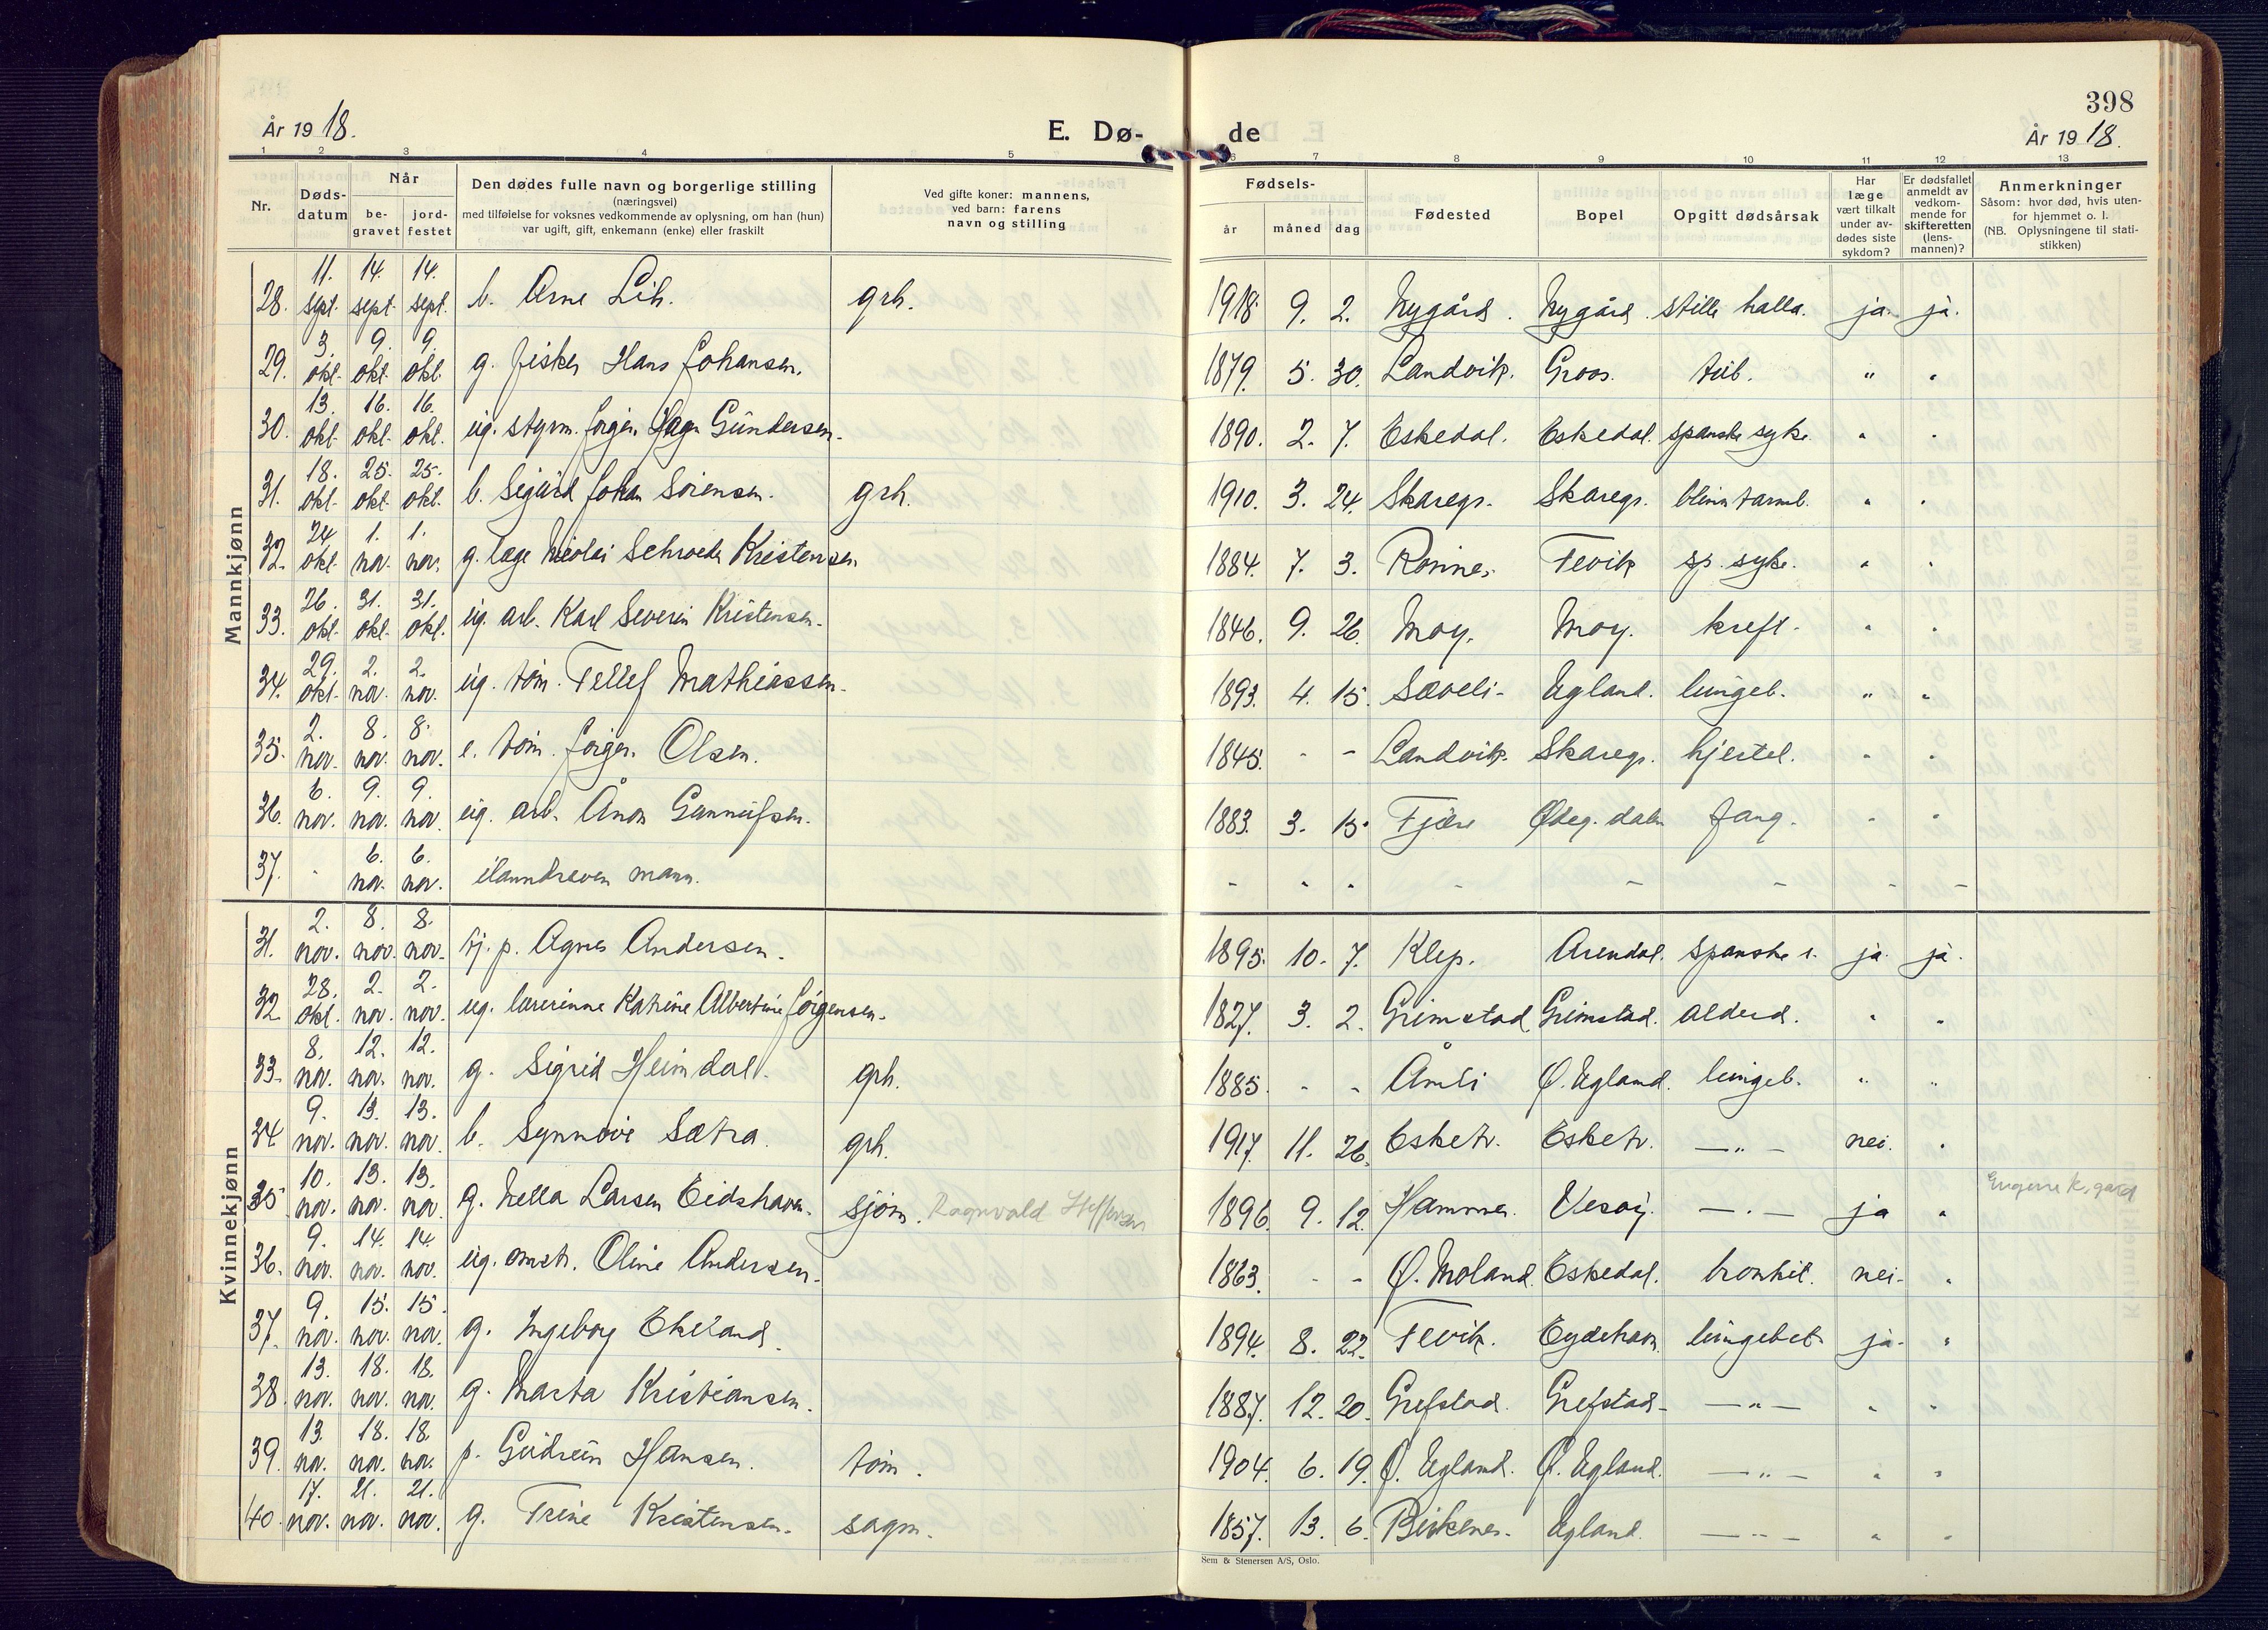 398
År 1918.
E. Dø-
de
År 1918.
1 2 3 4 5 6 7 8 9 10 11 12 13
Nr.
Døds-
datum
Når
be-
gravet
jord-
festet
Den dødes fulle navn og borgerlige stilling
(næringsvei)
med tilføielse for voksnes vedkommende av oplysning, om han (hun)
var ugift, gift, enkemann (enke) eller fraskilt
Ved gifte koner: mannens,
ved barn: farens
navn og stilling
Fødsels-
år
måned
dag
Fødested
Bopel
Opgitt dødsårsak
Har
læge
vært tilkalt
under av-
dødes siste
sykdom?
Er dødsfallet
anmeldt av
vedkom-
mende for
skifteretten
(lens-
mannen)?
Anmerkninger
Såsom: hvor død, hvis uten-
for hjemmet o. l.
(NB. Oplysningene til stati-
stikken)
Mannkjønn
28. 11. sept. 14. sept. 14. sept. b. Arne Lih. grh. 1918. 9. 2. Nygård. Nygård. stille halla. ja. ja.
29. 3. okt. 9. okt. 9. okt. g. fisker Hans Johansen. 1879. 5. 30. Landvik. Groos. tub. " "
30. 13. okt. 16. okt. 16. okt. ug. styrm. Jørgen Hagn Gundersen. 1890. 2. 7. Eskedal. Eskedal. spanske syke. " "
31. 18. okt. 25. okt. 25. okt. b. Sigurd Johan Sørensen. grh. 1910. 3. 24. Skaregr. Skaregr. blinntarmb. " "
32. 24 okt. 1. nov. 1. nov. g. læge Nicolai Schroeder Kristensen. 1884. 7. 3. Rønnes. Fevik sp. syke. " "
33. 26. okt. 31. okt. 31. okt. ug. arb. Karl Severin Kristensen. 1846. 9. 26. Moy. Moy. kreft. " "
34. 29. okt. 2. nov. 2. nov. ug. tøm. Tellef Mathiassen. 1893. 4. 15. Sæveli. Ugland. lungeb. " "
35. 2. nov. 8. nov. 8. nov. e. tøm. Jørgen Olsen. 1845. - - Landvik. Skaregr. hjertel. " "
36. 6. nov. 9. nov. 9. nov. ug. arb. Ånon Gunnufsen. 1883. 3. 15. Fjære Ødeg. dalen " "
37. - 6. nov. 6. nov. ilanndreven mann. - - - - - - - -
Kvinnekjønn
31. 2. nov. 8. nov. 8. nov. tj. p. Agnes Andersen. 1895. 10. 7. Klep. Arendal. spanske s. ja. ja.
32. 28. okt. 2. nov. 2. nov. ug. lærerinne Katrine Albertine Jørgensen. 1827. 3. 2. Grimstad. Grimstad. alderd. " "
33. 8. nov. 12. nov. 12. nov. g. Sigrid Heimdal. grh. 1885. - - Åmli Ø. Ugland. lungeb. " "
34. 9. nov. 13. nov. 13. nov. b. Synnøve Sætra. grh. 1917. 11. 26. Esketv. Esketv. —"— nei. "
35. 10. nov. 13. nov. 13. nov. g. Nella Larsen Eidshaven. sjøm. Ragnvald Steffensen 1896. 9. 12. Hammer. Vesøy. —"— ja " Engene k.gård
36. 9. nov. 14. nov. 14. nov. ug. omstr. Oline Andersen. 1863. - - Ø. Moland. Eskedal. bronkit. nei. "
37. 9. nov. 15. nov. 15. nov. g. Ingeborg Ekeland. 1894. 8. 22. Fevik. Eydehavn. lungebet. ja. "
38. 13. nov. 18. nov. 18. nov. g. Marta Kristiansen. 1887. 12. 20. Grefstad. Grefstad. —"— " "
39. 13. nov. 18. nov. 18. nov. p. Gudrun Hansen. tøm. 1904. 6. 19. Ø. Ugland. Ø. Ugland. —"— " "
40. 17. nov. 21. nov. 21. nov. g. Trine Kristensen. sagm. 1857. 13. 6. Birkenes. Ugland. —"— " "
Sem & Stenersen A/S, Oslo.